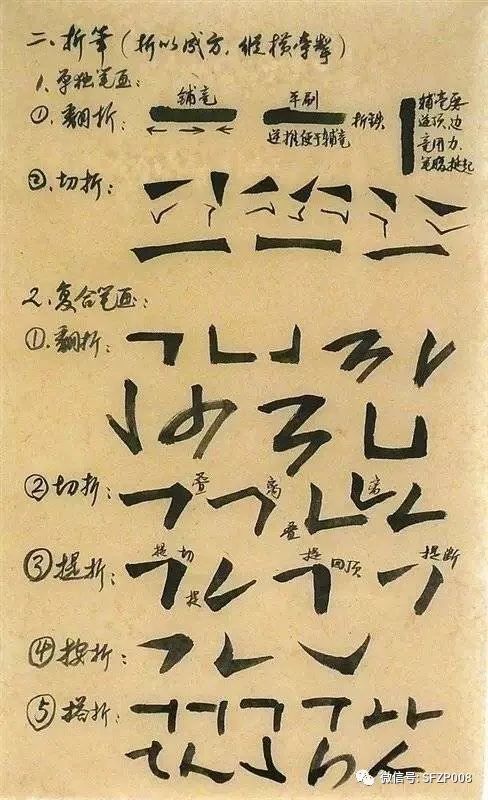 二、折笔（折以成方，纵横牵掣）
1、单独笔画：
①、翻折：
铺毫
平刷
折铁
送推便于铺毫
辅毫要
送顶，边
竟用力，
笔腹挺起
②、切折：
2、复合笔画：
①、翻折：
②切折：
叠
离
叠
离
③提折：
提 切
提
提 回顶
提断
④按折：
⑤搭折：
微信号: SFZP008